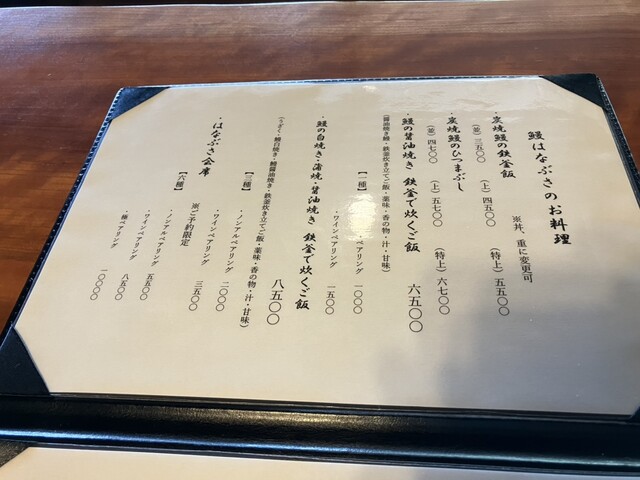 鰻はなぶさのお料理
※丼、重に変更可
・炭焼鰻の鉄釜飯
（並）三五〇〇　（上）四五〇〇　（特上）五五〇〇
・炭焼鰻のひつまぶし
（並）四七〇〇　（上）五七〇〇　（特上）六七〇〇
・鰻の醤油焼き 鉄釜で炊くご飯　六五〇〇
（醤油焼き鰻・鉄釜炊き立てご飯・薬味・香の物・汁・甘味）
【二種】
ペアリング　一〇〇〇
・ワインペアリング　一五〇〇
・鰻の白焼き・蒲焼・醤油焼き 鉄釜で炊くご飯　八五〇〇
（うざく・鰻白焼き・鰻醤油焼き・鉄釜炊き立てご飯・薬味・香の物・汁・甘味）
【三種】
・ノンアルペアリング　二〇〇〇
・ワインペアリング　三五〇〇
・はなぶさ会席　※ご予約限定
【六種】
・ノンアルペアリング　五五〇〇
・ワインペアリング　八五〇〇
ペアリング　一〇〇〇〇